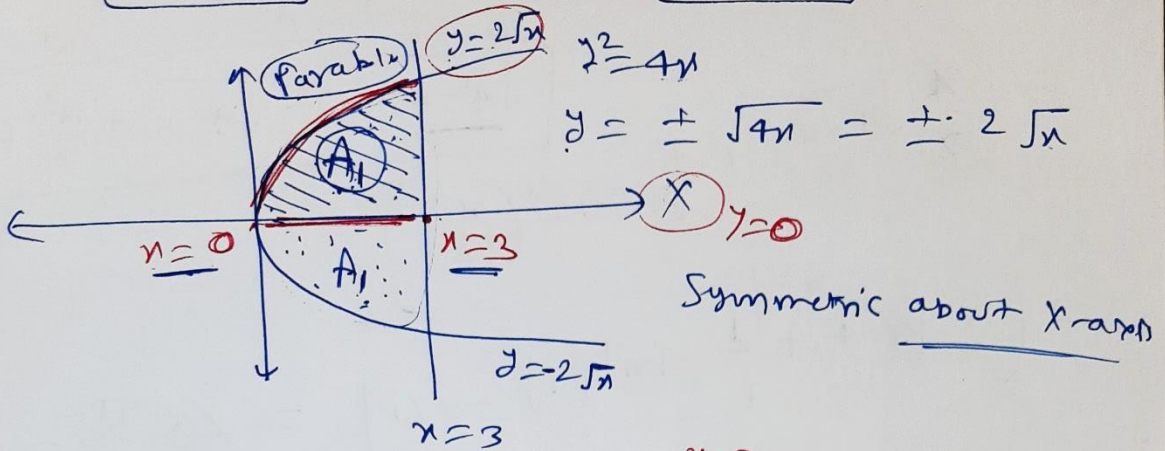 Parabla
y = 2√x
y² = 4x
y = ± √4x = ± 2 √x
A₁
X
y=0
x = 0
x = 3
A₁
Symmetric about X-axis
y = -2√x
x = 3